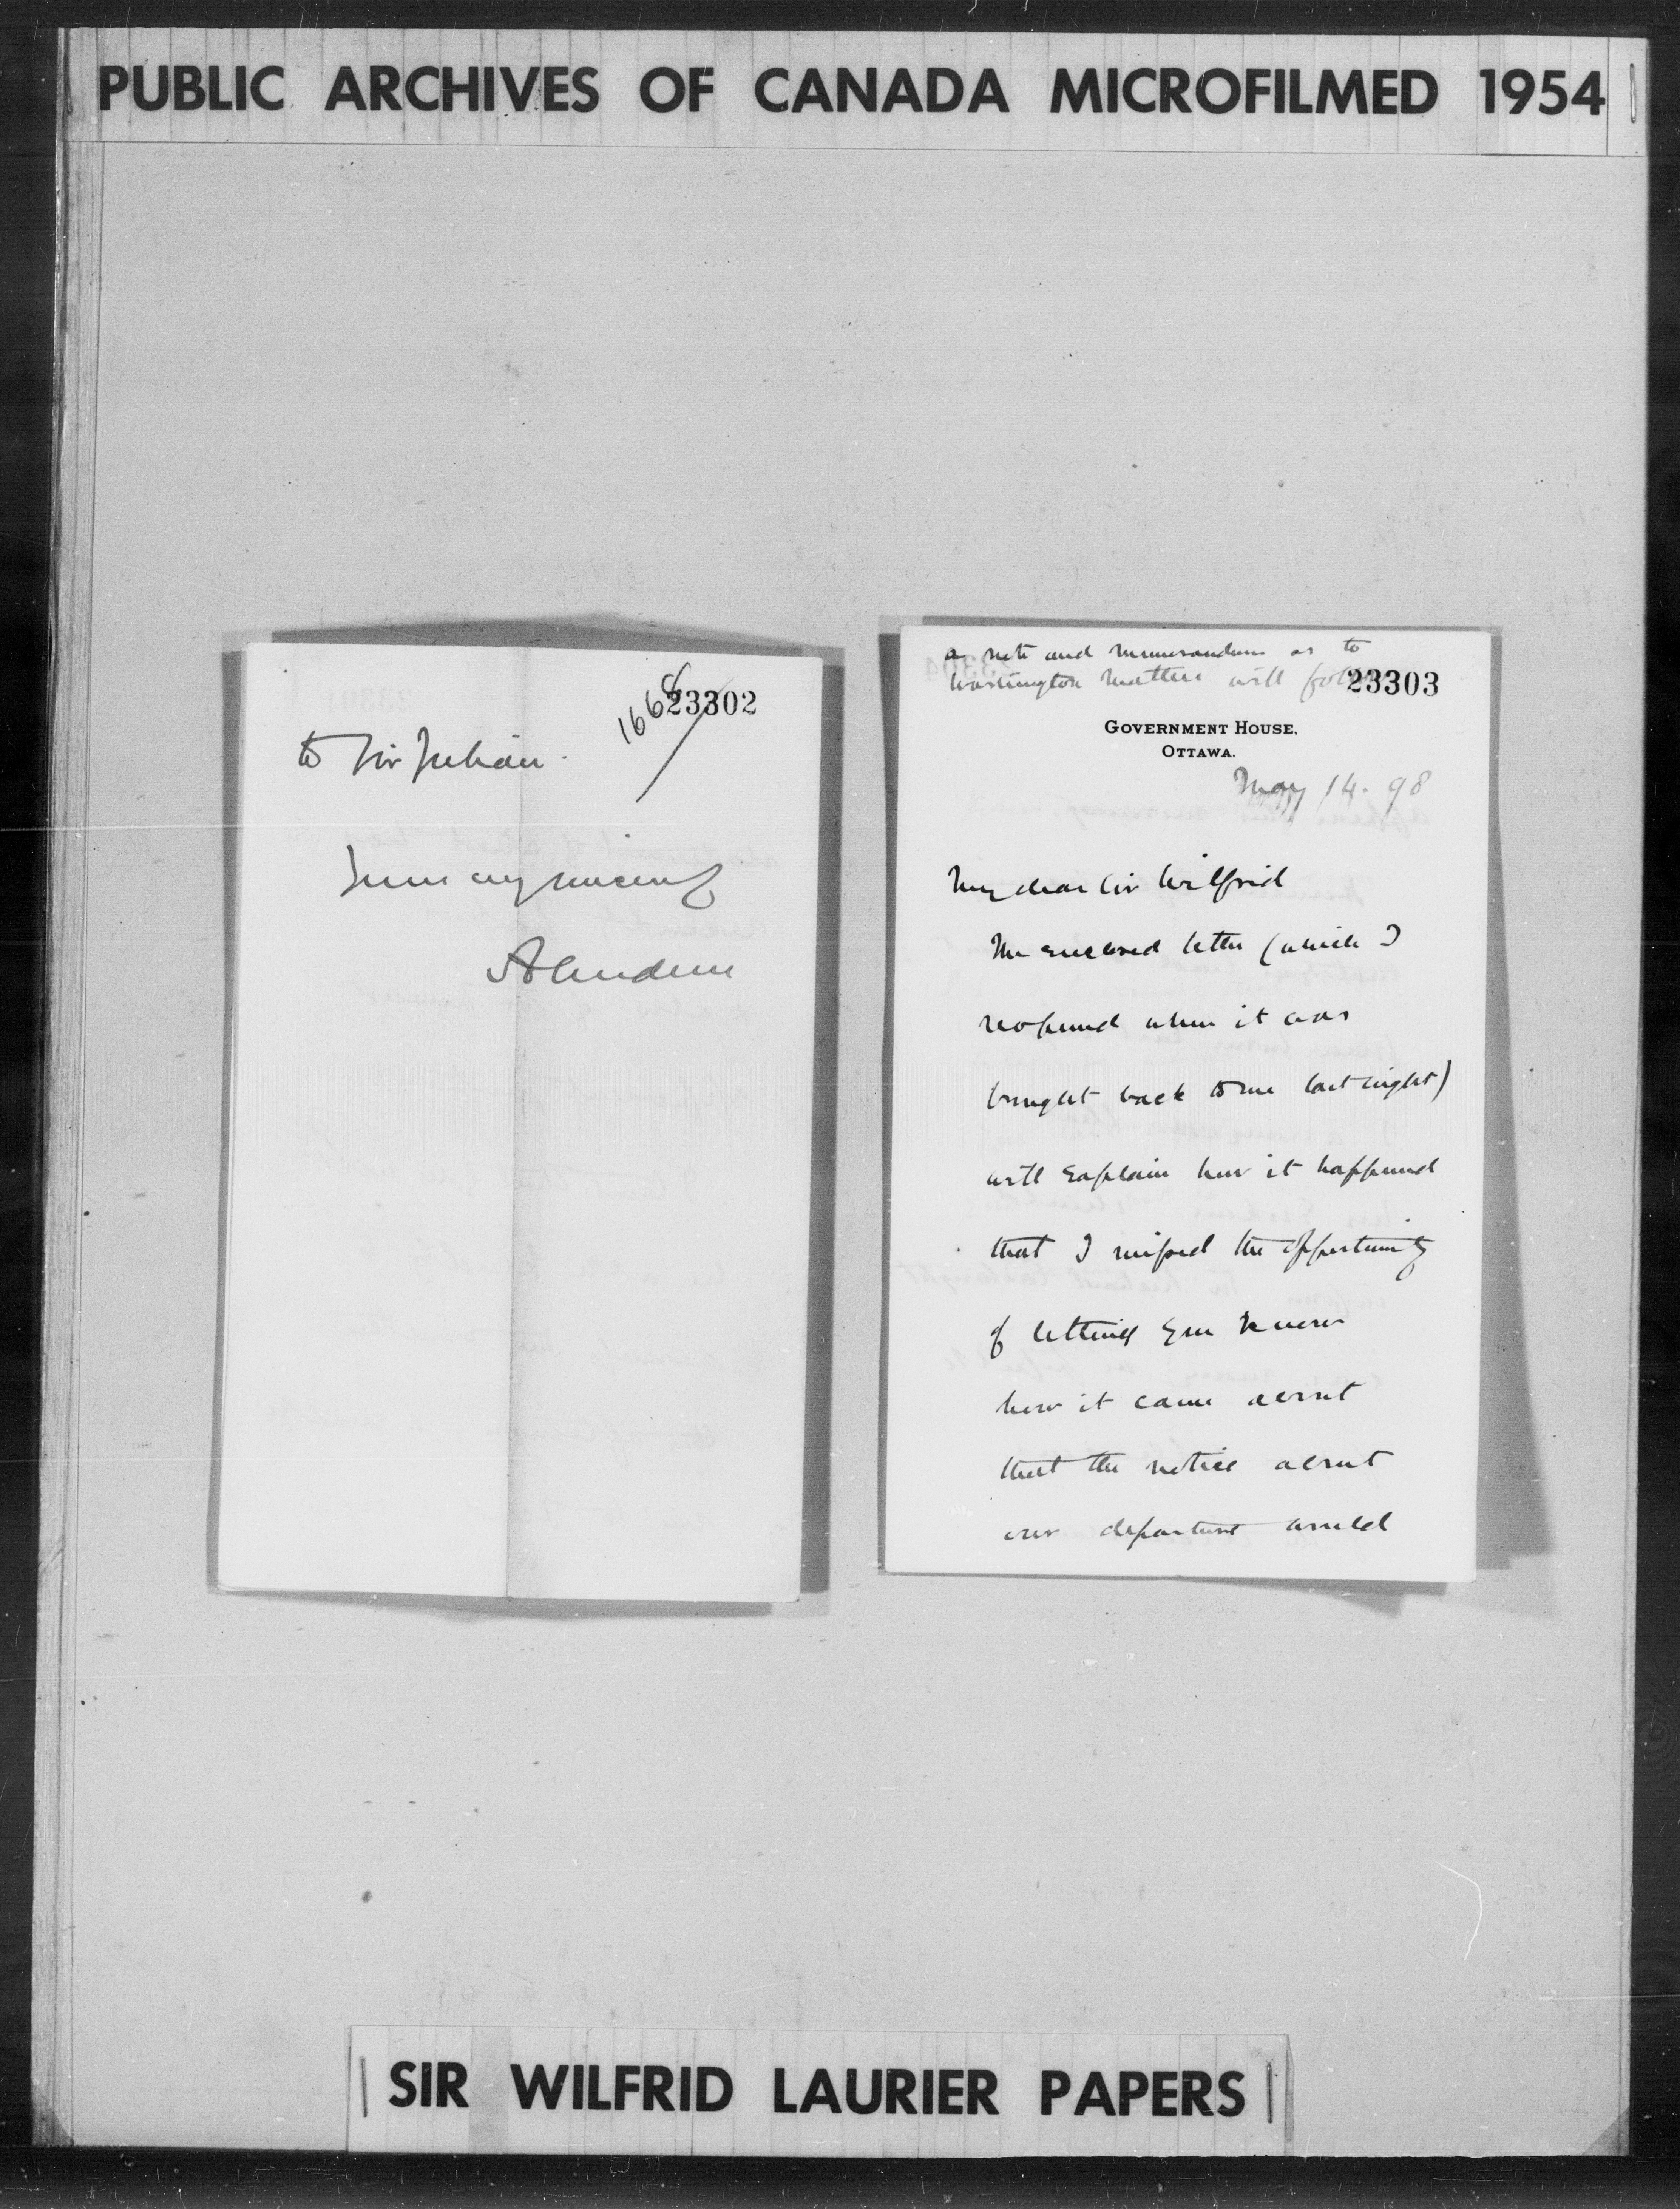 PUBLIC ARCHIVES OF CANADA MICROFILMED 1954
1668
23302
to Sir Julian.
Yours very sincerely
Aberdeen
a note and memorandum as to
Washington matters will follow
23303
GOVERNMENT HOUSE,
OTTAWA.
May 14. 98
My dear Sir Wilfrid
The enclosed letter (which I
reopened when it was
brought back to me last night)
will explain how it happened
that I missed the opportunity
of letting you know
how it came about
that the notice about
our departure would
SIR WILFRID LAURIER PAPERS